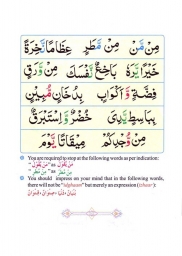 مِنْ مَّنْ مِنْ مَّطَرٍ عِظَامًا نَّخِرَةً
خَيْرًا يَّرَهٗ بَاخِعٌ نَّفْسَكَ مِنْ وَّرَقٍ
فِضَّةٍ وَّاَكْوَابٍ بِدُخَانٍ مُّبِيْنٍ
بِبَاسِطٍ يَّدِيَ خُضْرٌ وَّاِسْتَبْرَقٌ
مِنْ وُّجْدِكُمْ مِيْقَاتًا يَّوْمَ
You are required to stop at the following words as per indication:
"مَنْ يَّقُوْلُ" as مَنْ يَّقُوْلُ
"مِنْ مَّطَرٍ" as مِنْ مَّطَرٍ
You should impress on your mind that in the following words, there will not be "Idghaam" but merely an expression (izhaar):
بُنْيَانٌ، دُنْيَا، صِنْوَانٌ، قِنْوَانٌ